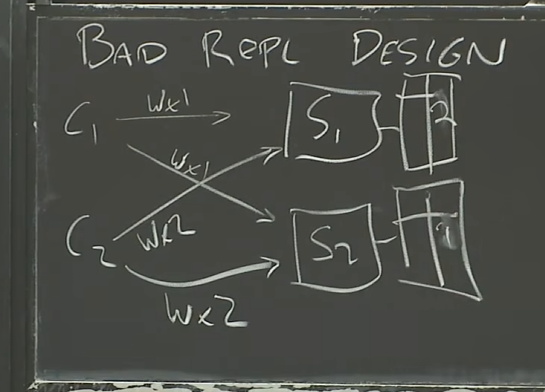 BAD REPL DESIGN
C1 Wx1 S1 2
Wx1
C2 Wx2 S2
Wx2